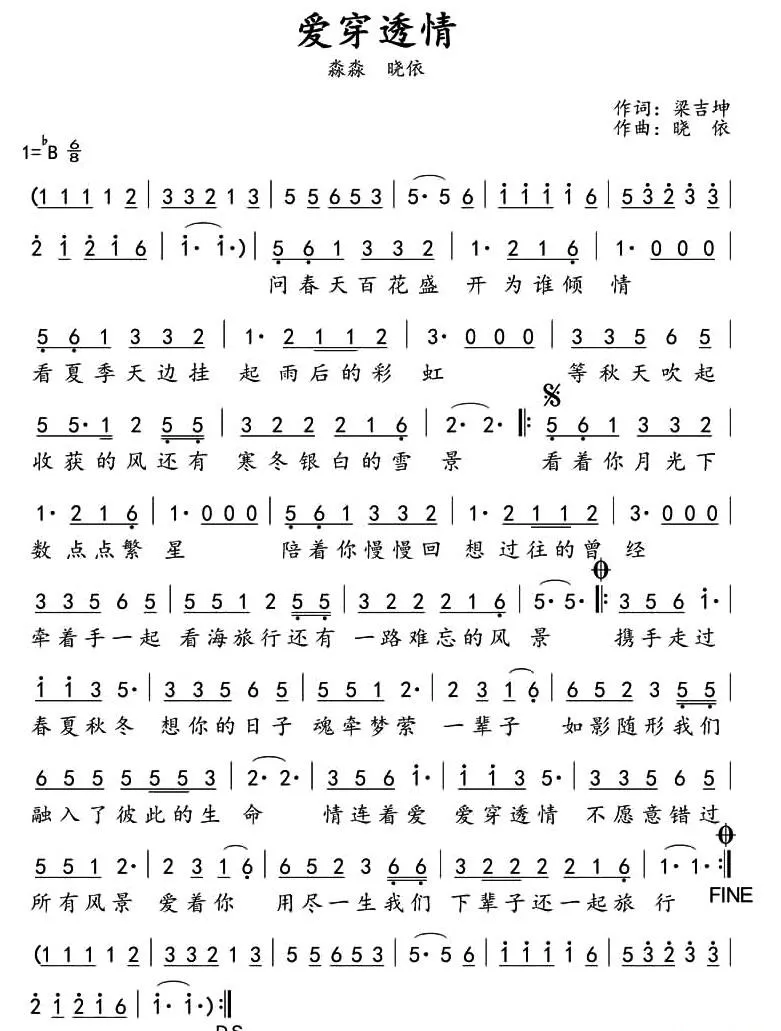 爱穿透情
淼淼 晓依
作词：梁吉坤
作曲：晓 依
1=♭B 6/8
(1 1 1 1 2 | 3 3 2 1 3 | 5 5 6 5 3 | 5· 5 6 | i i i i 6 | 5 3 2 3 3 |
2 i 2 i 6 | i· i·) | 5 6 1 3 3 2 | 1· 2 1 6 | 1· 0 0 0 |
问春天百花盛 开为谁倾 情
5 6 1 3 3 2 | 1· 2 1 1 2 | 3· 0 0 0 | 3 3 5 6 5 |
看夏季天边挂 起雨后的彩 虹 等秋天吹起
5 5· 1 2 5 5 | 3 2 2 2 1 6 | 2· 2· 𝄆 5 6 1 3 3 2 |
收获的风还有 寒冬银白的雪 景 看着你月光下
1· 2 1 6 | 1· 0 0 0 | 5 6 1 3 3 2 | 1· 2 1 1 2 | 3· 0 0 0 |
数点点繁 星 陪着你慢慢回 想过往的曾 经
3 3 5 6 5 | 5 5 1 2 5 5 | 3 2 2 2 1 6 | 5· 5· 𝄆 3 5 6 i· |
牵着手一起 看海旅行还有 一路难忘的风 景 携手走过
i i 3 5· | 3 3 5 6 5 | 5 5 1 2· | 2 3 1 6 | 6 5 2 3 5 5 |
春夏秋冬 想你的日子 魂牵梦萦 一辈子 如影随形我们
6 5 5 5 5 3 | 2· 2· | 3 5 6 i· | i i 3 5· | 3 3 5 6 5 |
融入了彼此的生 命 情连着爱 爱穿透情 不愿意错过
5 5 1 2· | 2 3 1 6 | 6 5 2 3 6 6 | 3 2 2 2 1 6 | 1· 1· :|
所有风景 爱着你 用尽一生我们 下辈子还一起旅 行 FINE
(1 1 1 1 2 | 3 3 2 1 3 | 5 5 6 5 3 | 5· 5 6 | i i i i 6 | 5 3 2 3 3 |
2 i 2 i 6 | i· i·) :|
D.S